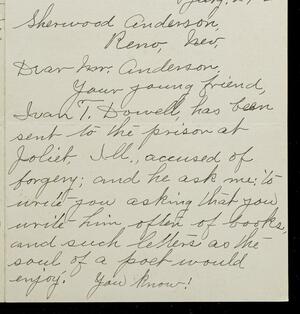 Sherwood Anderson,
Reno, Nev.
Dear Mr. Anderson,
Your young friend,
Ivan T. Dowell, has been
sent to the prison at
Joliet, Ill., accused of
forgery; and he ask me to
write you asking that you
write him often of books,
and such letters as the
soul of a poet would
enjoy. You know!